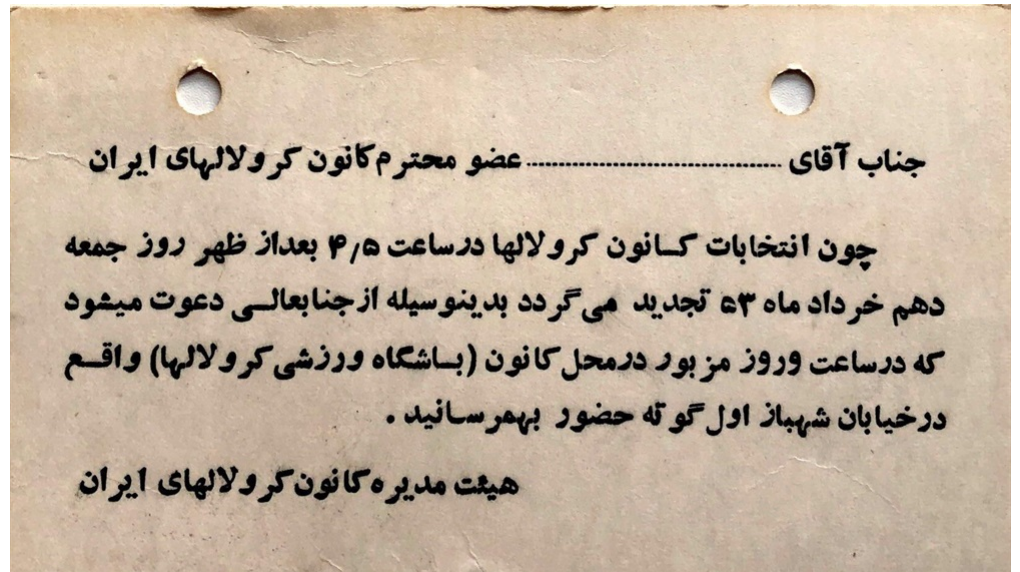 جناب آقای ........................................ عضو محترم کانون کرولالهای ایران
چون انتخابات کانون کرولالها درساعت ۴٫۵ بعداز ظهر روز جمعه
دهم خرداد ماه ۵۳ تجدید می‌گردد بدینوسیله ازجنابعالی دعوت میشود
که درساعت وروز مزبور درمحل کانون (باشگاه ورزشی کرولالها) واقع
درخیابان شهباز اول گوته حضور بهمرسانید .
هیئت مدیره کانون کرولالهای ایران